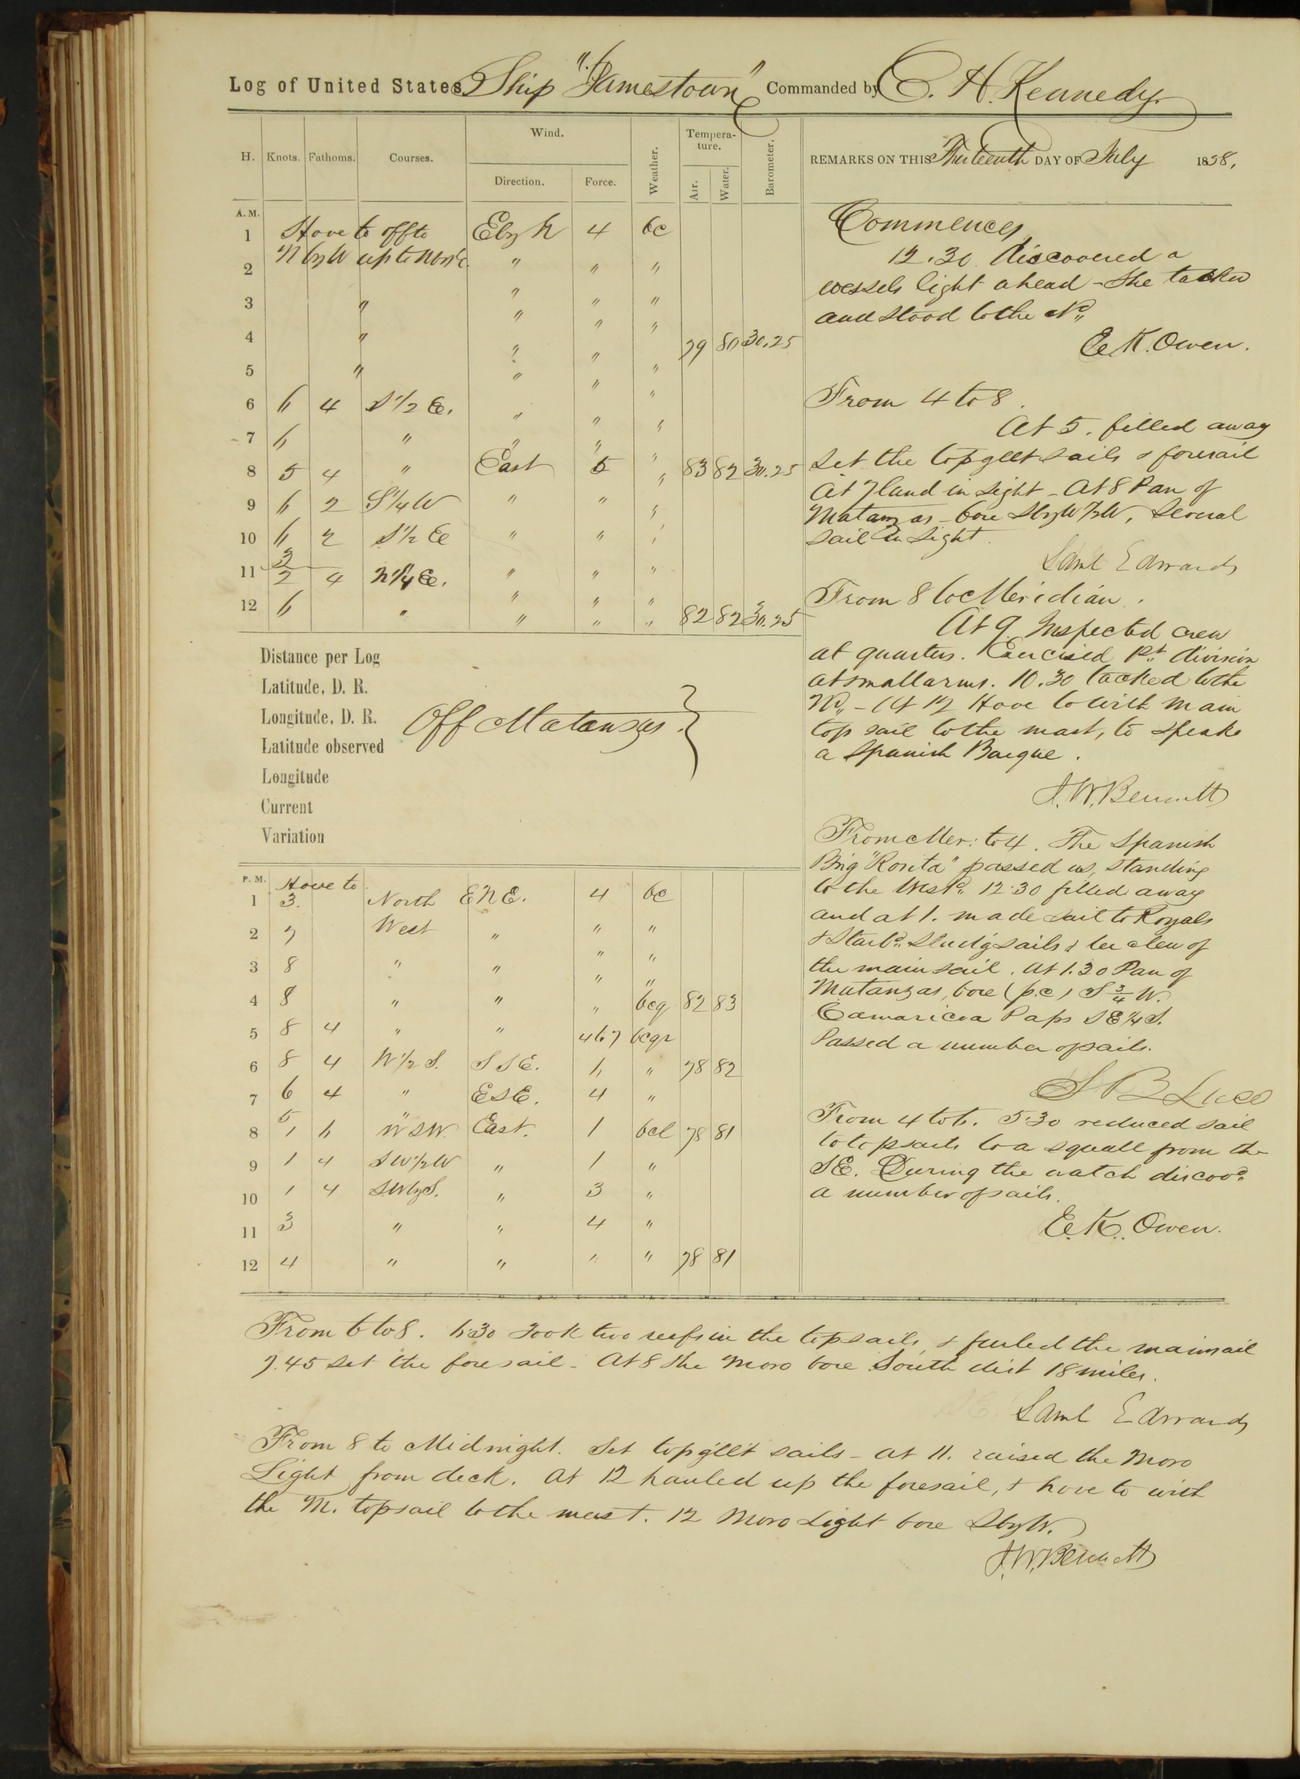 Log of United States Ship "Jamestown" Commanded by C. H. Kennedy
H. Knots. Fathoms. Courses. Wind. Direction. Force. Weather. Tempera-ture. Air. Water. Barometer.
REMARKS ON THIS Thirteenth DAY OF July 1858,
A. M.
1 Hove to off to E by N 4 bc
N by W up to N by E
2 " " "
3 " " " "
4 " " " " 79 80 30.25
5 " " " "
6 6 4 S 1/2 E. " " "
7 6 " " " "
8 5 4 " East 5 " 83 82 30.25
9 6 2 S 1/4 W " " "
10 6 2 S 1/2 E " " "
11 3 2 4 N 1/4 E. " " "
12 6 " " " " 82 82 30.25
Distance per Log
Latitude, D. R.
Longitude, D. R.
Latitude observed
Off Matanzas.
Longitude
Current
Variation
P. M.
1 Hove to 3. North ENE. 4 bc
2 7 West " " "
3 8 " " " "
4 8 " " " bcq 82 83
5 8 4 " " 4 to 7 bcqr
6 8 4 W 1/2 S. SSE. 6 " 78 82
7 6 4 " ESE. 4 "
8 5 1 6 WSW East. 1 bcl 78 81
9 1 4 SW 1/2 W " 1 "
10 1 4 SW by S. " 3 "
11 3 " " 4 "
12 4 " " " " 78 81
Commences
12.30 discovered a
vessels light ahead - She tacked
and stood to the Nd.
E. K. Owen.
From 4 to 8.
At 5. filled away
set the topgllt sails & foresail
At 7 land in sight - At 8 Pan of
Matanzas - bore S by W 1/2 W, several
sail in sight.
Saml Edwards
From 8 to Meridian.
At 9 Inspected crew
at quarters. Exercised 1st division
at small arms. 10.30 tacked to the
Nd. - At 12 Hove to with main
top sail to the mast, to speak
a Spanish Barque.
J. W. Bennett
From Mer: to 4. The Spanish
Brig "Rosita" passed us, standing
to the Westd. 12.30 filled away
and at 1. made sail to Royals
& Starbd. Studg sails & lee clew of
the mainsail. At 1.30 Pan of
Matanzas, bore (p.c) S 3/4 W.
Camarioca Paps SE 1/4 S.
Passed a number of sails.
S B Luce
From 4 to 6. 5.30 reduced sail
to topsails to a squall from the
SE. During the watch discovd.
a number of sails.
E. K. Owen.
From 6 to 8. 6.30 Took two reefs in the topsails, & furled the mainsail
7.45 set the foresail - At 8 the Moro bore South dist 18 miles.
Saml Edwards
From 8 to Midnight. Set topgllt sails - at 11. raised the Moro
Light from deck. At 12 hauled up the foresail, & hove to with
the M. topsail to the mast. 12 Moro Light bore S by W.
J. W. Bennett